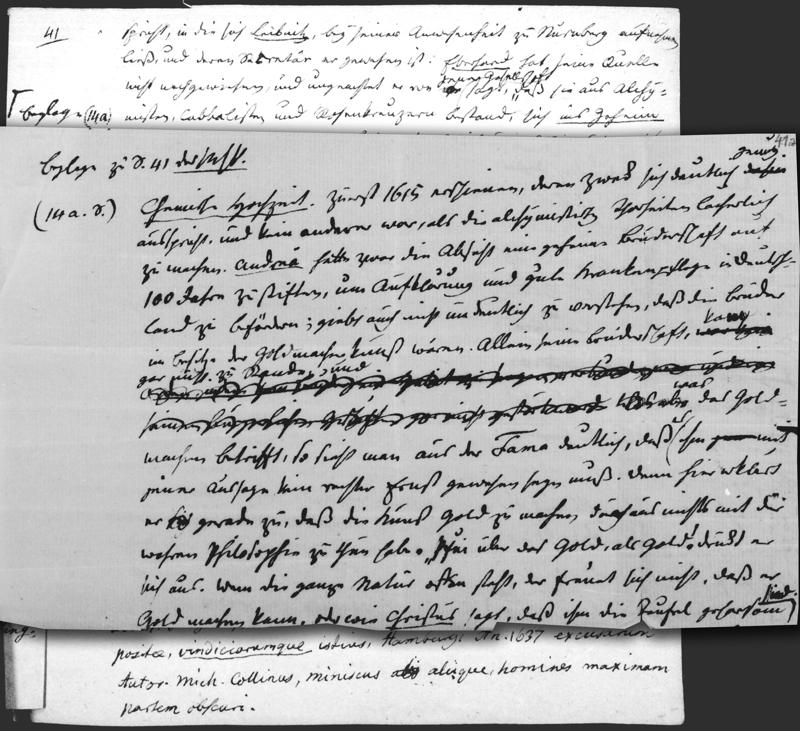 41
spricht, in die sich Leibnitz, bey seiner Anwesenheit zu Nürnberg aufnehmen
ließ, und deren Secretär er gewesen ist: Eberhard hat seine Quelle
nicht nachgewiesen, und ungeachtet er von jener Gesellschaft sagt, "daß sie aus Alchy-
Beylage (14a) misten, Cabbalisten und Rosenkreuzern bestand, sich ins Geheim
41a
Beylage zu S. 41 der Mspt.
(14 a. S.) Chemische Hochzeit. zuerst 1615 erschienen, deren Zweck sich deutlich genug
ausspricht, und kein anderer war, als die alchymistischen Thorheiten lächerlich
zu machen. Andreä hatte zwar die Absicht eine geheime Brüderschaft auf
100 Jahre zu stiften, um Aufklärung und gute Krankenpflege in Deutsch-
land zu befördern; giebt auch nicht undeutlich zu verstehen, daß die Brüder
im Besitze der Goldmacherkunst wären. Allein seine Brüderschaft, kam
gar nicht zu Stande, und
was das Gold-
machen betrifft, so sieht man aus der Fama deutlich, daß es ihm mit
jener Aussage kein rechter Ernst gewesen seyn muß. Denn hier erklärt
er gerade zu, daß die Kunst Gold zu machen, durchaus nichts mit der
wahren Philosophie zu thun habe. "Pfui über das Gold, als Gold! drückt er
sich aus. Wem die ganze Natur offen steht, der freuet sich nicht, daß er
Gold machen kann, oder wie Christus sagt, daß ihm die Teufel gehorsam sind.
positae, vindiciarumque istius, Hamburgi An. 1637 excusarum
Autor. Mich. Collinus, miniscus aliique, homines maximam
partem obscuri.